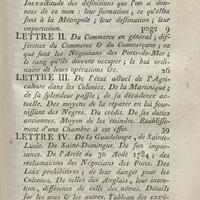 Inexactitude des définitions que l'on a don-
nées de ce nom: leur formation; ce qu'elles
sont à la Métropole; leur destination; leur
importation. page 9
LETTRE II. Du Commerce en général; dif-
férence du Commerce & du Commerçant; ce
que sont les Négocians des Ports-de-Mer;
le rang qu'ils doivent occuper; le but ordi-
naire de leurs opérations &c. 26
LETTRE III. De l'état actuel de l'Agri-
culture dans les Colonies. De la Martinique;
de sa splendeur passée; de sa décadence ac-
tuelle. Des moyens de la réparer en lui four-
nissant des Nègres. Des causes de son inertie.
Moyen de les éteindre. Etablissement
d'une Chambre à cet effet. 39
LETTRE IV. De la Guadeloupe, de Sainte-
Lucie. De Saint-Domingue. De son impor-
tance. De l'Arrêt du 30 Août 1784; des
réclamations des Négocians des Ports. Des
Loix prohibitives; de leur danger pour les
Colonies. De celles des Anglais, leur inten-
tion, différence de celle des nôtres. Détails
sur les unes & les autres. Tableau des extré-